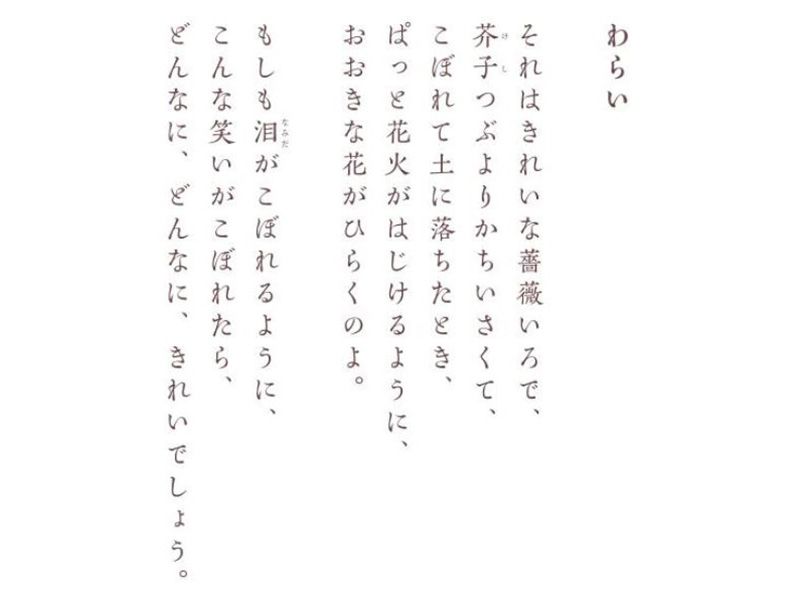 わらい
それはきれいな薔薇いろで、
芥子つぶよりかちいさくて、
こぼれて土に落ちたとき、
ぱっと花火がはじけるように、
おおきな花がひらくのよ。
もしも泪がこぼれるように、
こんな笑いがこぼれたら、
どんなに、どんなに、きれいでしょう。